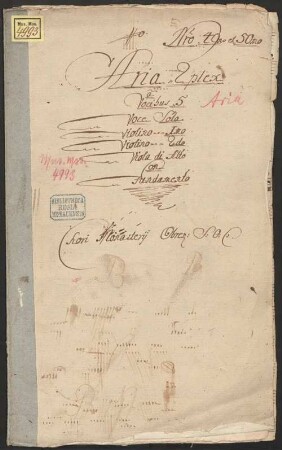 Mus. Mss.
4993
Nro 49no et 50mo
Aria Duplex
à
Vocibus 5
Aria
Voce Sola
Violino Imo
Violino 2do
Viola di Alto
Con
Fundamento
Mus. Mss.
4993
BIBLIOTHECA
REGIA
MONACENSIS
Chori Monasterij